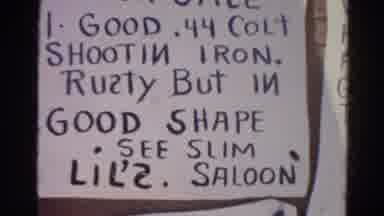 1. GOOD .44 COLT
SHOOTIN IRON.
RUSTY BUT IN
GOOD SHAPE
• SEE SLIM •
LIL'S. SALOON